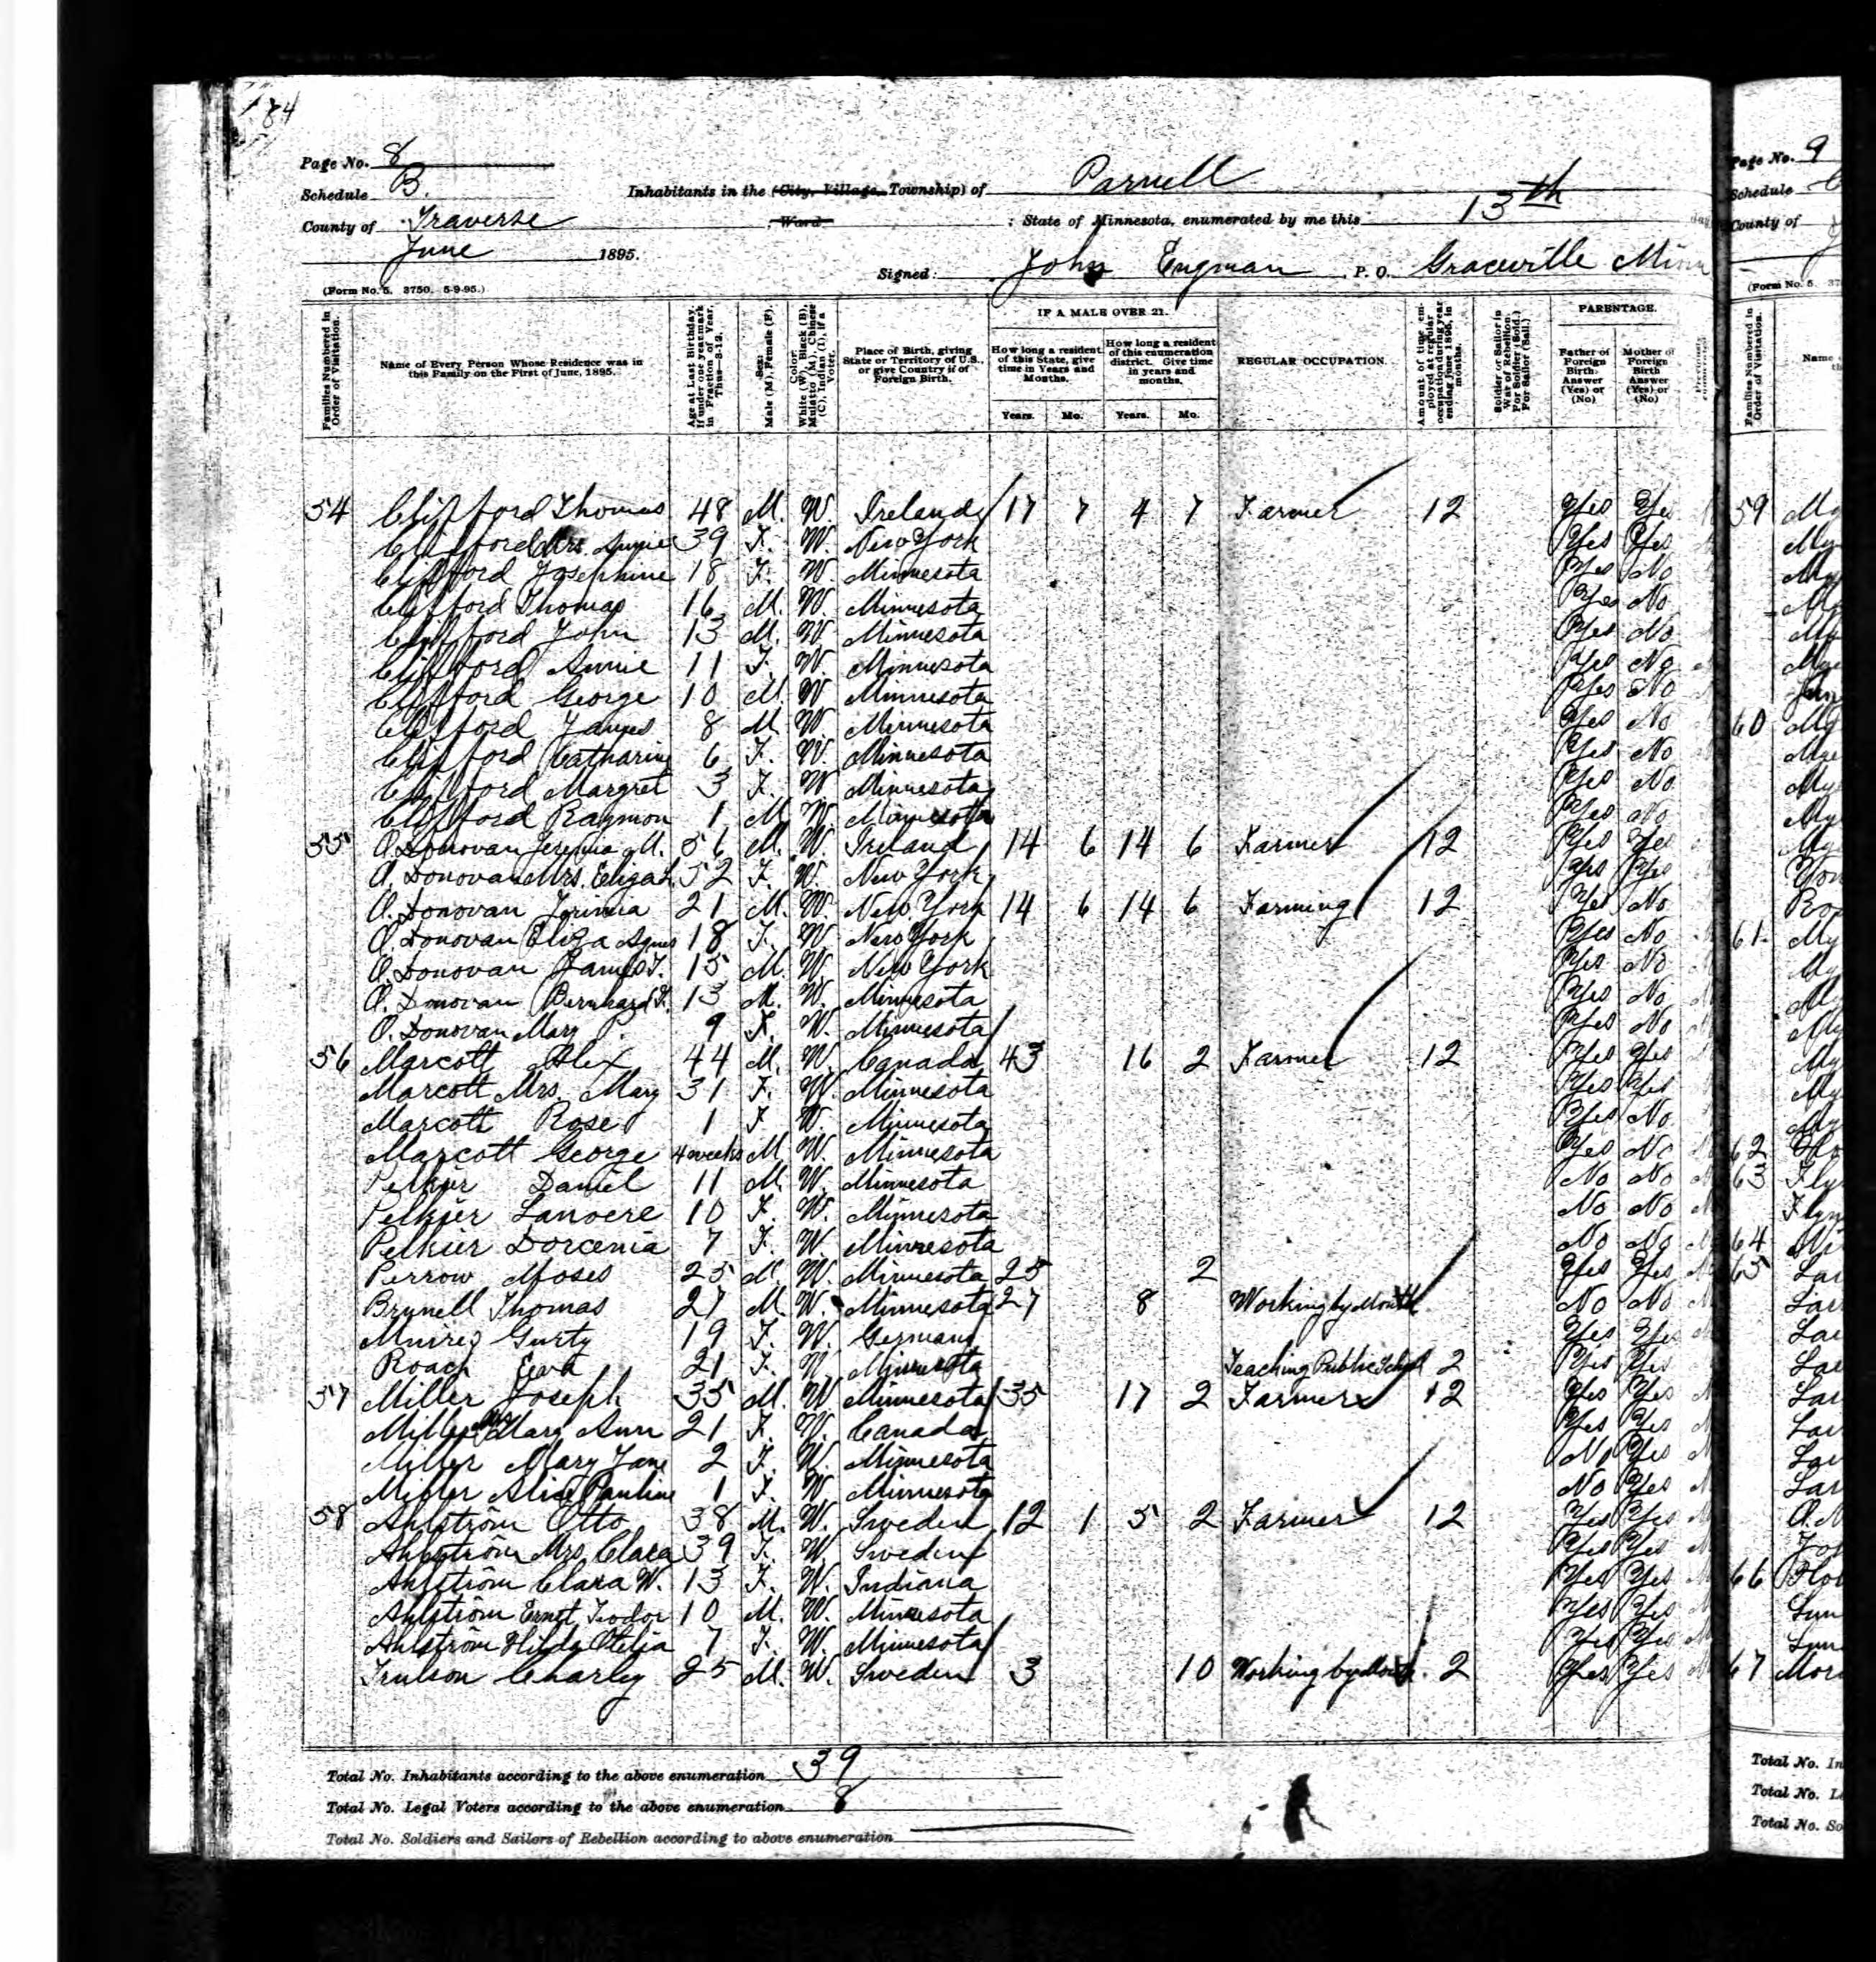 184
Page No. 8
Schedule B.
Inhabitants in the (City, Village, Township) of Parnell
County of Traverse ; Ward ; State of Minnesota, enumerated by me this 13th
June 1895.
Signed: John Engman P. O. Graceville Minn
(Form No. 5. 3750. 5-9-95.)
Families Numbered in Order of Visitation.
Name of Every Person Whose Residence was in this Family on the First of June, 1895.
Age at Last Birthday. If under one year, mark in Fraction of Year, Thus—3-12.
Sex: Male (M), Female (F).
Color: White (W), Black (B), Mulatto (M), Chinese (C), Indian (I), if a Voter.
Place of Birth, giving State or Territory of U.S., or give Country if of Foreign Birth.
IF A MALE OVER 21.
How long a resident of this State, give time in Years and Months.
How long a resident of this enumeration district. Give time in years and months.
Years. Mo. Years. Mo.
REGULAR OCCUPATION.
Amount of time employed at regular occupation during year ending June 1895, in months.
Soldier or Sailor in War of Rebellion. For Soldier (Sold.) For Sailor (Sail.)
PARENTAGE.
Father of Foreign Birth. Answer (Yes) or (No)
Mother of Foreign Birth Answer (Yes) or (No)
54 Clifford Thomas 48 M. W. Ireland 17 7 4 7 Farmer 12 Yes Yes
Clifford Mrs. Annie 39 F. W. New York Yes Yes
Clifford Josephine 18 F. W. Minnesota Yes No
Clifford Thomas 16 M. W. Minnesota Yes No
Clifford John 13 M. W. Minnesota Yes No
Clifford Annie 11 F. W. Minnesota Yes No
Clifford George 10 M W Minnesota Yes No
Clifford James 8 M W. Minnesota Yes No
Clifford Catharine 6 F. W. Minnesota Yes No
Clifford Margret 3 F. W Minnesota Yes No
Clifford Raymon 1 M W. Minnesota Yes No
55 O.Donovan Jeremia M. 56 M. W. Ireland 14 6 14 6 Farmer 12 Yes Yes
O. Donovan Mrs. Eliza 52 F. W. New York Yes Yes
O. Donovan Jerimia 21 M. W. New York 14 6 14 6 Farming 12 Yes No
O. Donovan Eliza Agnes 18 F. W. New York Yes No
O. Donovan James F. 15 M. W. New York Yes No
O. Donovan Bernhard 13 M. W. Minnesota Yes No
O. Donovan Mary P. 9 F. W. Minnesota Yes No
56 Marcott Alex 44 M. W. Canada 43 16 2 Farmer 12 Yes Yes
Marcott Mrs. Mary 31 F. W. Minnesota Yes Yes
Marcott Rose 1 F W. Minnesota Yes No
Marcott George 4 weeks M. W. Minnesota Yes No
Daniel 11 M. W. Minnesota No No
Pelkier Lanoere 10 F. W. Minnesota No No
Pelkier Dorcenia 7 F. W. Minnesota No No
Perrow Moses 25 M. W. Minnesota 25 2 Yes Yes
Brunell Thomas 27 M. W. Minnesota 27 8 Working by Month No No
Gurty 19 F. W. Germany Yes Yes
Roach Eva 21 F. W. Minnesota Teaching Public School 2 Yes Yes
57 Miller Joseph 35 M. W Minnesota 35 17 2 Farmer 12 Yes Yes
Miller Mrs Mary Ann 21 F. W. Canada Yes Yes
Miller Mary Jane 2 F. W. Minnesota No Yes
Miller Alice Pauline 1 F. W Minnesota No Yes
58 Ahlström Otto 38 M. W. Sweden 12 1 5 2 Farmer 12 Yes Yes
Ahlström Mrs. Clara 39 F. W. Sweden Yes Yes
Ahlström Clara W. 13 F. W. Indiana Yes Yes
Ahlström Ernst Teodor 10 M. W. Minnesota Yes Yes
Ahlström Hilda Otelia 7 F. W. Minnesota Yes Yes
Trulson Charley 25 M. W. Sweden 3 10 Working by Month 2 Yes Yes
Total No. Inhabitants according to the above enumeration 39
Total No. Legal Voters according to the above enumeration 8
Total No. Soldiers and Sailors of Rebellion according to above enumeration
Page No. 9
Schedule
County of
(Form No. 5. 37
Families Numbered in Order of Visitation.
Name
59
60
61
62
63
64
65
66
67
Total No. In
Total No. Le
Total No. So